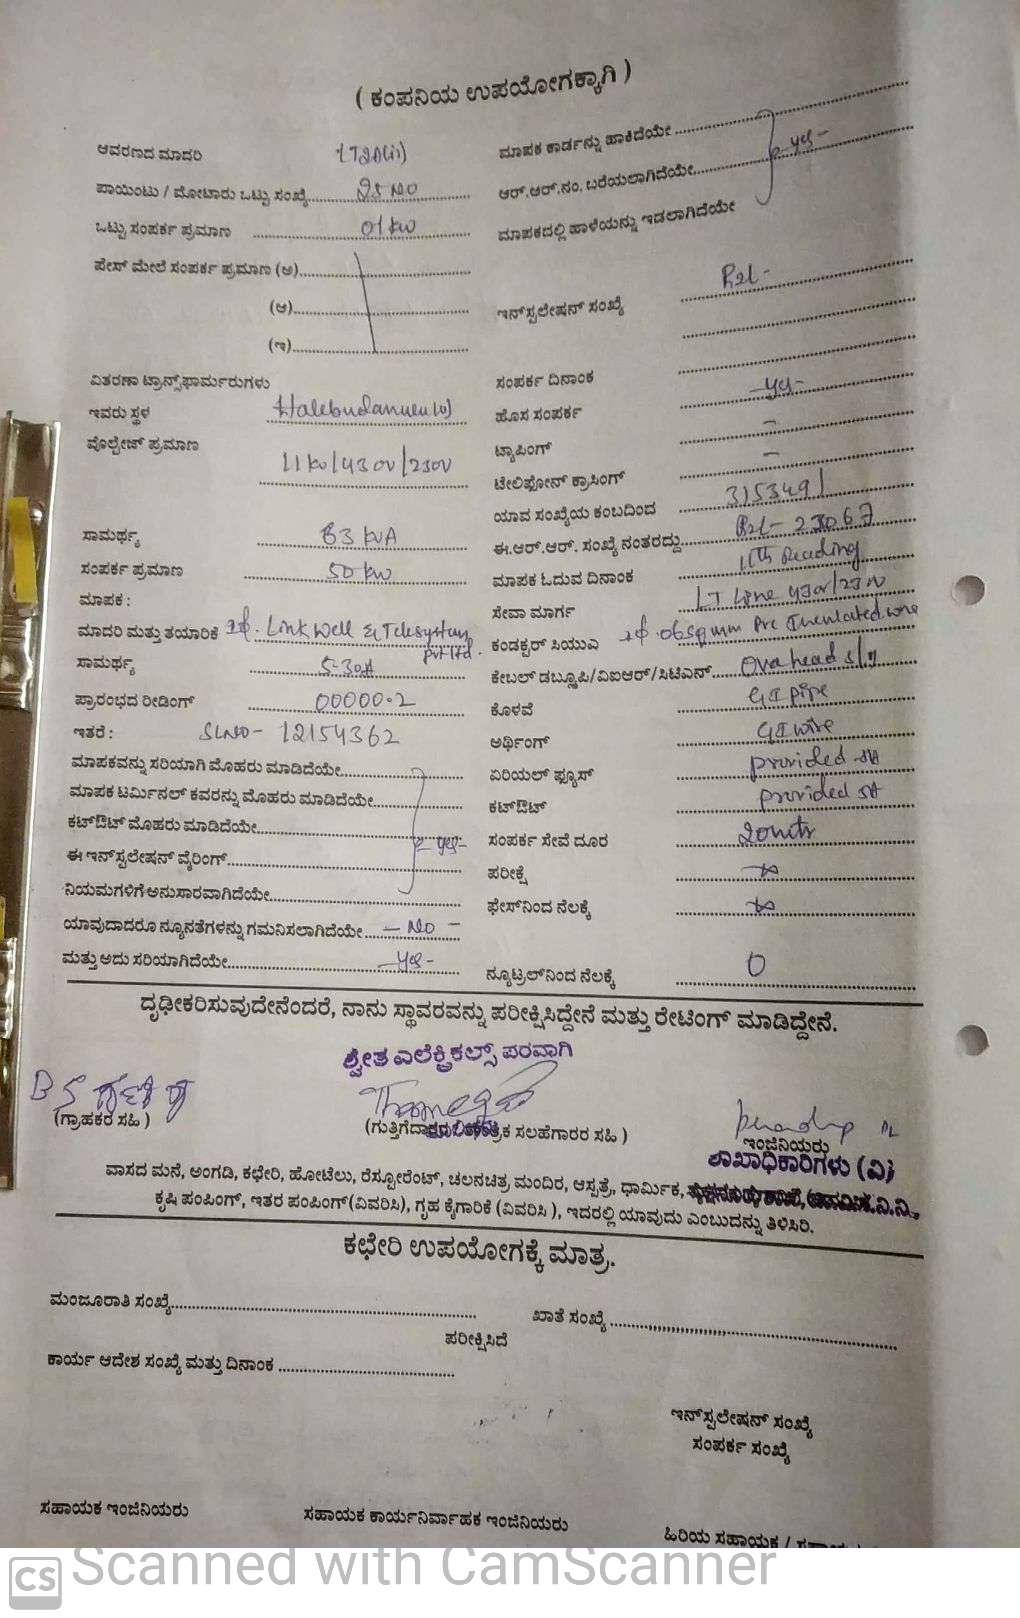 ( ಕಂಪನಿಯ ಉಪಯೋಗಕ್ಕಾಗಿ )
ಆವರಣದ ಮಾದರಿ LT2A(ii)
ಪಾಯಿಂಟು / ಮೋಟಾರು ಒಟ್ಟು ಸಂಖ್ಯೆ 05 NO
ಒಟ್ಟು ಸಂಪರ್ಕ ಪ್ರಮಾಣ 01 kW
ಪೇಸ್ ಮೇಲೆ ಸಂಪರ್ಕ ಪ್ರಮಾಣ (ಅ)
(ಆ)
(ಇ)
ವಿತರಣಾ ಟ್ರಾನ್ಸ್‌ಫಾರ್ಮರುಗಳು
ಇವರು ಸ್ಥಳ
ವೊಲ್ಟೇಜ್ ಪ್ರಮಾಣ
11kv/430v/230v
ಸಾಮರ್ಥ್ಯ 63 kVA
ಸಂಪರ್ಕ ಪ್ರಮಾಣ 50 kW
ಮಾಪಕ :
ಮಾದರಿ ಮತ್ತು ತಯಾರಿಕೆ 1ф. Linkwell Telesystem
Pvt Ltd.
ಸಾಮರ್ಥ್ಯ 5-30A
ಪ್ರಾರಂಭದ ರೀಡಿಂಗ್ 00000.2
ಇತರೆ : SLNO- 12154362
ಮಾಪಕವನ್ನು ಸರಿಯಾಗಿ ಮೊಹರು ಮಾಡಿದೆಯೇ
ಮಾಪಕ ಟರ್ಮಿನಲ್ ಕವರನ್ನು ಮೊಹರು ಮಾಡಿದೆಯೇ
ಕಟ್‌ಔಟ್ ಮೊಹರು ಮಾಡಿದೆಯೇ - yes -
ಈ ಇನ್‌ಸ್ಟಲೇಷನ್ ವೈರಿಂಗ್
ನಿಯಮಗಳಿಗೆ ಅನುಸಾರವಾಗಿದೆಯೇ
ಯಾವುದಾದರೂ ನ್ಯೂನತೆಗಳನ್ನು ಗಮನಿಸಲಾಗಿದೆಯೇ - NO -
ಮತ್ತು ಅದು ಸರಿಯಾಗಿದೆಯೇ - yes -
ಮಾಪಕ ಕಾರ್ಡನ್ನು ಹಾಕಿದೆಯೇ
ಆರ್.ಆರ್.ನಂ. ಬರೆಯಲಾಗಿದೆಯೇ - yes -
ಮಾಪಕದಲ್ಲಿ ಹಾಳೆಯನ್ನು ಇಡಲಾಗಿದೆಯೇ
ಇನ್‌ಸ್ಟಲೇಷನ್ ಸಂಖ್ಯೆ
ಸಂಪರ್ಕ ದಿನಾಂಕ
ಹೊಸ ಸಂಪರ್ಕ - yes -
ಟ್ಯಾಪಿಂಗ್ -
ಟೇಲಿಫೋನ್ ಕ್ರಾಸಿಂಗ್ -
ಯಾವ ಸಂಖ್ಯೆಯ ಕಂಬದಿಂದ 3153491
ಈ.ಆರ್.ಆರ್. ಸಂಖ್ಯೆ ನಂತರದ್ದು
ಮಾಪಕ ಓದುವ ದಿನಾಂಕ 11th Reading
ಸೇವಾ ಮಾರ್ಗ LT Line 430v/230v
ಕಂಡಕ್ಟರ್ ಸಿಯುಎ 1ф 06 sqmm Pvc Insulated wire
ಕೇಬಲ್ ಡಬ್ಲೂಪಿ/ವಿಐಆರ್/ಸಿಟಿಎನ್ Over head
ಕೊಳವೆ GI pipe
ಅರ್ಥಿಂಗ್ GI wire
ಏರಿಯಲ್ ಫ್ಯೂಸ್ provided
ಕಟ್‌ಔಟ್ provided
ಸಂಪರ್ಕ ಸೇವೆ ದೂರ 20mtr
ಪರೀಕ್ಷೆ ∞
ಫೇಸ್‌ನಿಂದ ನೆಲಕ್ಕೆ ∞
ನ್ಯೂಟ್ರಲ್‌ನಿಂದ ನೆಲಕ್ಕೆ 0
ದೃಢೀಕರಿಸುವುದೇನೆಂದರೆ, ನಾನು ಸ್ಥಾವರವನ್ನು ಪರೀಕ್ಷಿಸಿದ್ದೇನೆ ಮತ್ತು ರೇಟಿಂಗ್ ಮಾಡಿದ್ದೇನೆ.
ಶ್ವೇತ ಎಲೆಕ್ಟ್ರಿಕಲ್ಸ್ ಪರವಾಗಿ
(ಗ್ರಾಹಕರ ಸಹಿ )
ಸಲಹೆಗಾರರ ಸಹಿ )
ಇಂಜಿನಿಯರು
ಶಾಖಾಧಿಕಾರಿಗಳು (ವಿ)
ವಾಸದ ಮನೆ, ಅಂಗಡಿ, ಕಛೇರಿ, ಹೋಟೆಲು, ರೆಸ್ಟೋರೆಂಟ್, ಚಲನಚಿತ್ರ ಮಂದಿರ, ಆಸ್ಪತ್ರೆ, ಧಾರ್ಮಿಕ,
ಕೃಷಿ ಪಂಪಿಂಗ್, ಇತರ ಪಂಪಿಂಗ್(ವಿವರಿಸಿ), ಗೃಹ ಕೈಗಾರಿಕೆ (ವಿವರಿಸಿ ), ಇದರಲ್ಲಿ ಯಾವುದು ಎಂಬುದನ್ನು ತಿಳಿಸಿರಿ.
ಕಛೇರಿ ಉಪಯೋಗಕ್ಕೆ ಮಾತ್ರ.
ಮಂಜೂರಾತಿ ಸಂಖ್ಯೆ ಖಾತೆ ಸಂಖ್ಯೆ
ಪರೀಕ್ಷಿಸಿದೆ
ಕಾರ್ಯ ಆದೇಶ ಸಂಖ್ಯೆ ಮತ್ತು ದಿನಾಂಕ
ಇನ್‌ಸ್ಟಲೇಷನ್ ಸಂಖ್ಯೆ
ಸಂಪರ್ಕ ಸಂಖ್ಯೆ
ಸಹಾಯಕ ಇಂಜಿನಿಯರು ಸಹಾಯಕ ಕಾರ್ಯನಿರ್ವಾಹಕ ಇಂಜಿನಿಯರು ಹಿರಿಯ ಸಹಾಯಕ /
CS Scanned with CamScanner